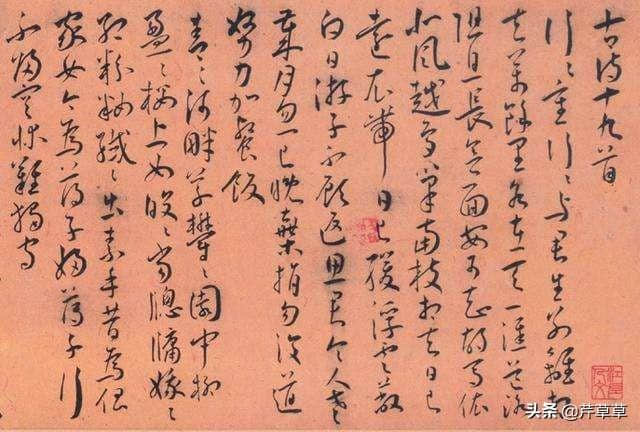 古詩十九首
行々重行々与君生别離相
去萬餘里各在天一涯道路
阻且長會面安可知胡馬依
北風越鳥巢南枝相去日已
遠衣帶日已緩浮雲蔽
白日遊子不顧返思君令人老
歲月忽已晚棄捐勿復道
努力加餐飯
青々河畔草鬱々園中柳
盈々樓上女皎々當牕牖娥々
紅粉粧纖々出素手昔為倡
家女今為蕩子婦蕩子行
不歸空牀難獨守
头条 @芹草草